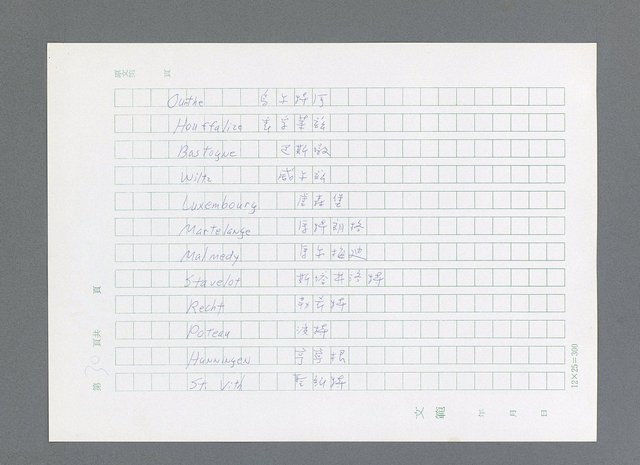 頁
Ourthe 烏尔特河
Houffalize
Bastogne 巴斯敦
Wiltz 威尔斯
Luxembourg 盧森堡
Martelange 馬特朗格
Malmedy 馬尔梅迪
Stavelot 斯塔弗洛特
Recht
Poteau 波特
Hunningen 亨寧根
St. Vith 聖維特
第 30 頁共 頁
文範 年 月 日
12×25=300